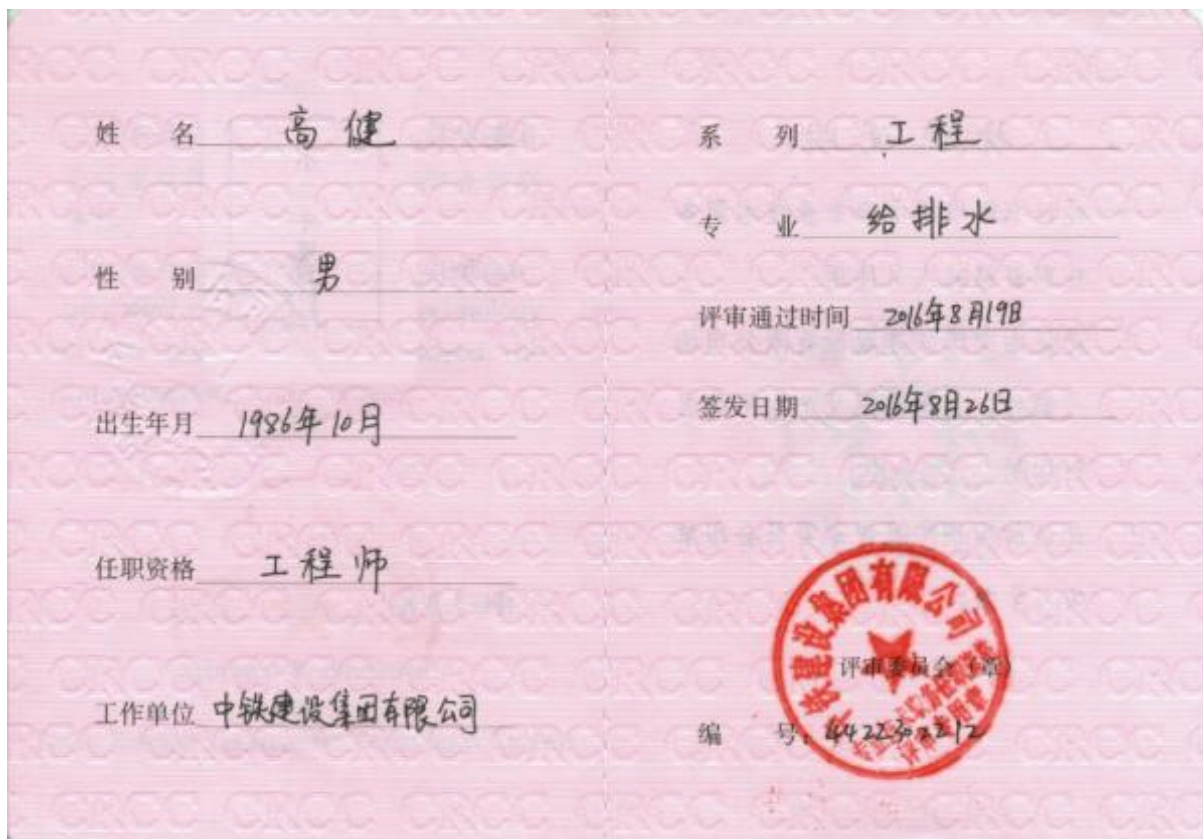 姓 名 高健
性 别 男
出生年月 1986年10月
任职资格 工程师
工作单位 中铁建设集团有限公司
系 列 工程
专 业 给排水
评审通过时间 2016年8月19日
签发日期 2016年8月26日
中铁建设集团有限公司
评审委员会（章）
编 号：4422302212